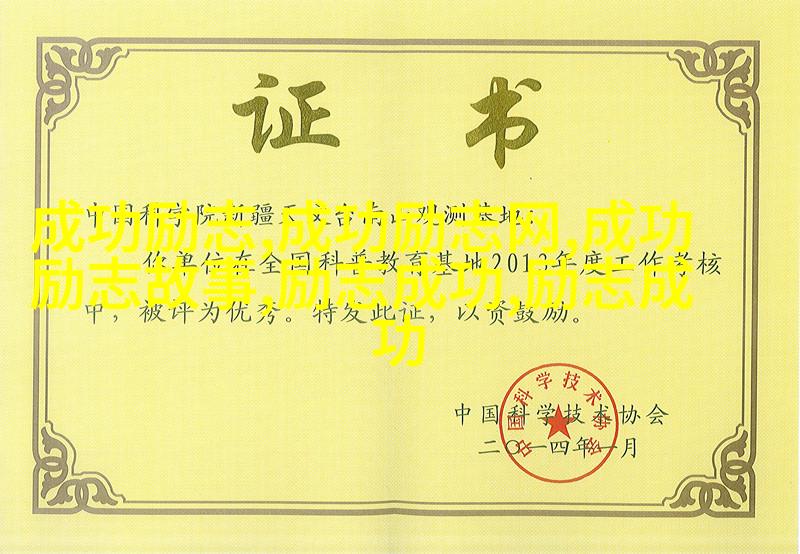 证书
中国科学院新疆天文台南山观测基地:
成功励志,成功励志网,成功
你单位在全国科普教育基地2013年度工作考核
励志故事,励志成功,励志成
中，被评为优秀。特发此证，以资鼓励。
功
中国科学技术协会
中国科学技术协会
二〇一四年一月